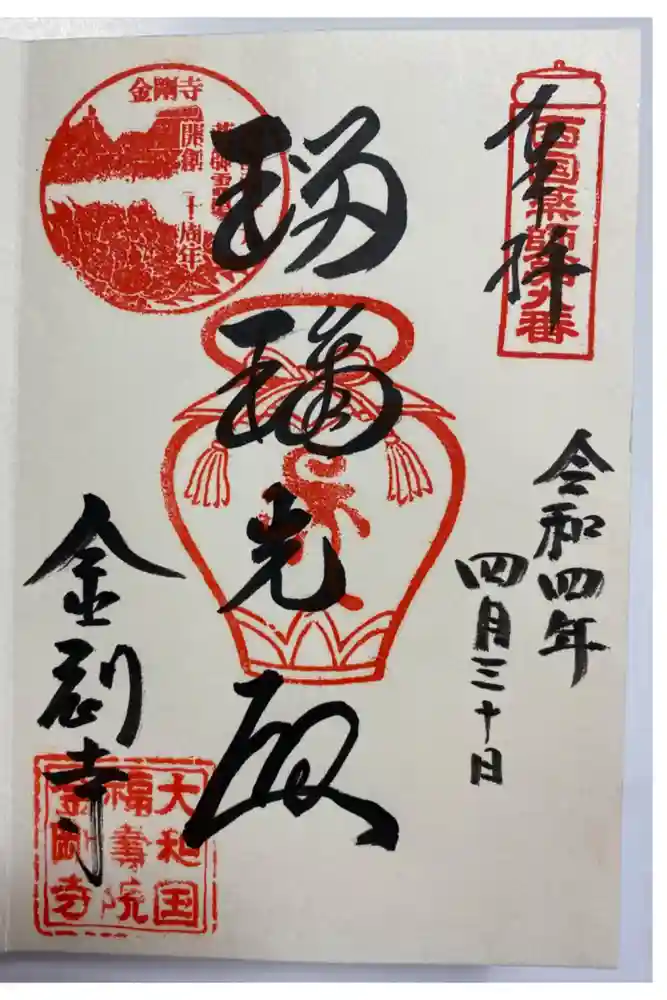 奉拝
西国薬師第九番
令和四年
四月三十日
瑠璃光殿
金剛寺
開創
十周年
金剛寺
大和国
福寿院
金剛寺